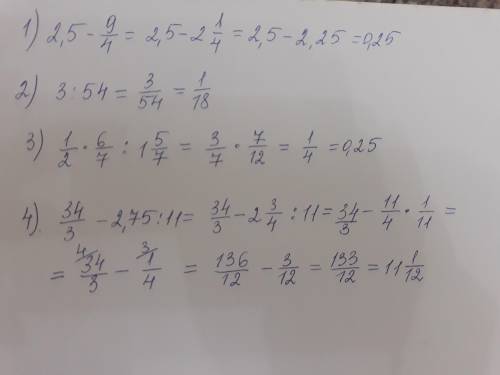 1) 2,5 - 9/4 = 2,5 - 2 1/4 = 2,5 - 2,25 = 0,25
2) 3 : 54 = 3/54 = 1/18
3) 1/2 · 6/7 : 1 5/7 = 3/7 · 7/12 = 1/4 = 0,25
4). 34/3 - 2,75 : 11 = 34/3 - 2 3/4 : 11 = 34/3 - 11/4 · 1/11 =
= 4/ 34/3 - 3/ 1/4 = 136/12 - 3/12 = 133/12 = 11 1/12